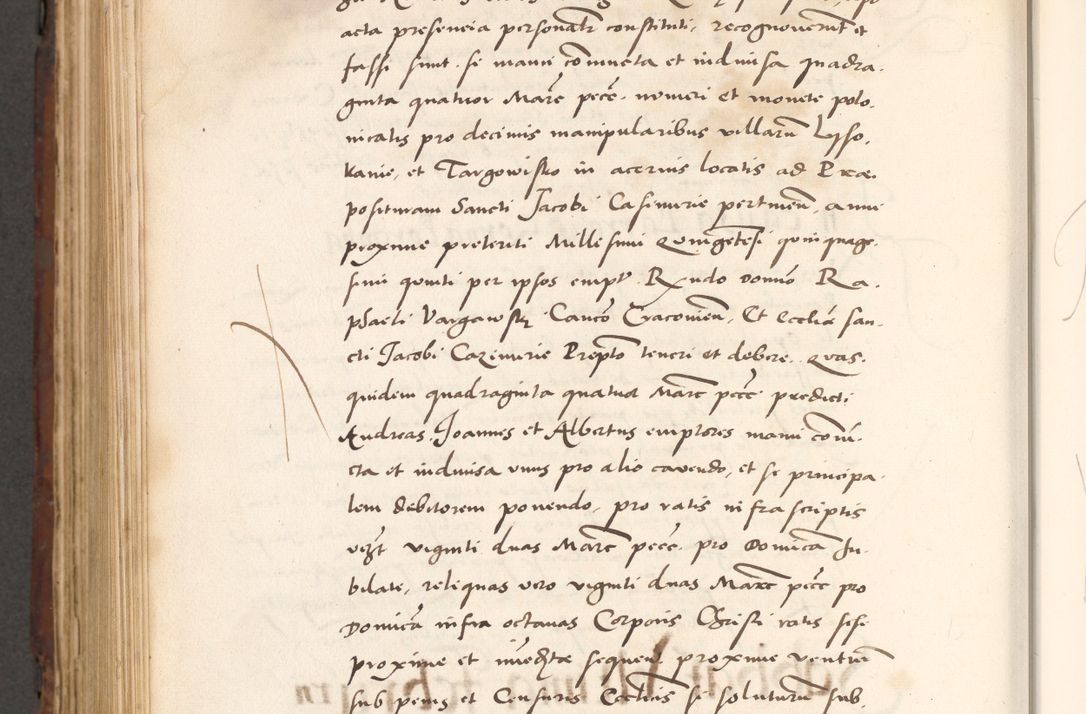 acta presencia personalr constituti, recognoverunt et
fassi sunt. se manu coniuncta et indiuisa quadra-
ginta quatuor Marc pecc. numeri et monete polo-
nicalis pro decimis manipularibus villaru Lysso-
kanie, et Targowisko in aceruis locatis ad Præ-
posituram Sancti Jacobi Casimirie pertinen, anni
proxime preteriti Millesimi Quingētesi quinquage-
simi quinti per ipsos empt. Rxndo Domino Ra-
phaeli Vargawsky Canco Cracovien, Et Ecclia san-
cti Jacobi Cazimirie Prepto teneri et debere. Quas-
quidem quadraginta quatuor Marc pecc predicti
Andreas, Joannes et Albertus emptores manu coniu-
cta et indiuisa unus pro alio cavendo, et se principa-
lem debitorem ponendo, pro ratis infrascriptis
vizt viginti duas Marc pecc. pro Domica Ju-
bilate, reliquas vero viginti duas Marc pecc pro
Domica infra octauas Corporis Christi ratis sese
proxime et immediate sequen proxime ventur
sub penis et Censuris Ecclicis se soluturu sub